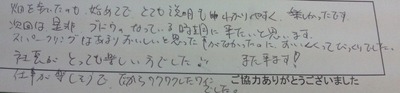 畑を見たのも 始めてで とても説明も 分かりやすく、楽しかったです
次回は是非 ブドウのなっている時期に来たいと思います。
スパークリングはあまりおいしいと思った事がなかったのに、おいしくってびっくりでした。
社長がとっても楽しい方でした♪ また来ます!
仕事が楽しそうで、だからワクワクしたワイン でした。
ご協力ありがとうございました